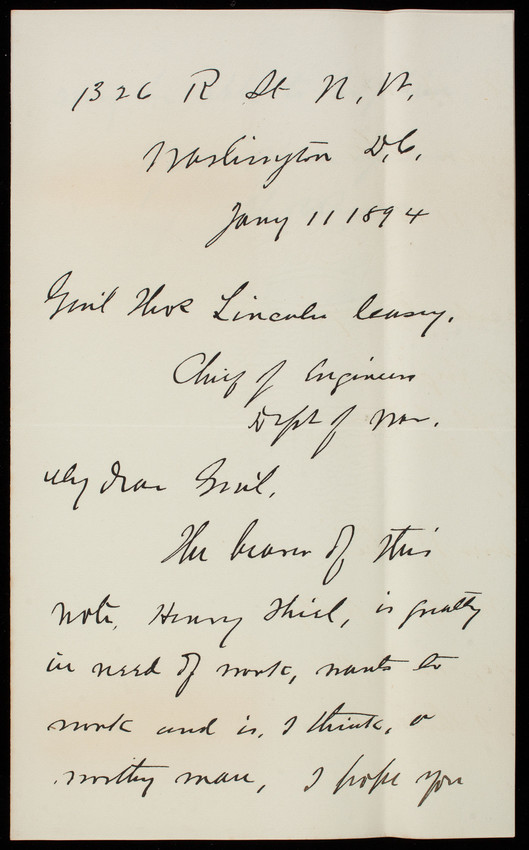 1326 R St N. W.
Washington D.C.
Jany 11 1894
Genl Thos Lincoln Casey.
Chief of Engineers
Dept of War.
My dear Genl.
The bearer of this
note, Henry Shiel, is greatly
in need of work, wants to
work and is, I think, a
worthy man, I hope you